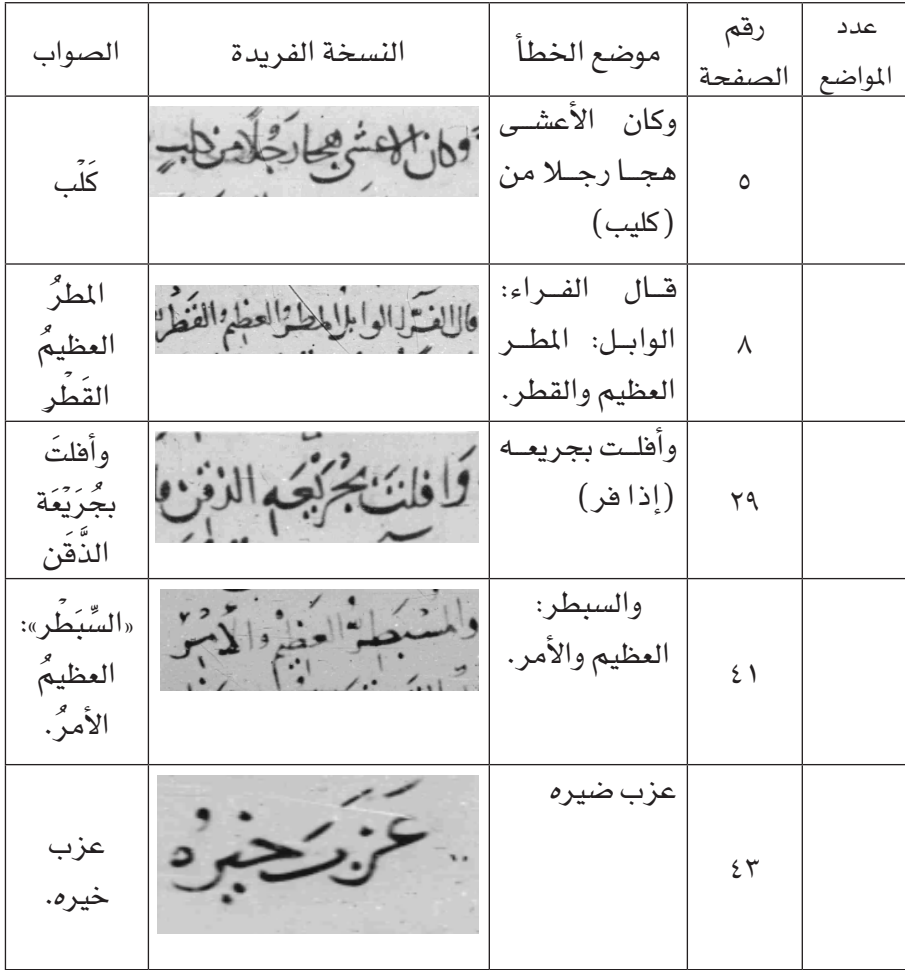 عدد
المواضع
رقم
الصفحة
موضع الخطأ
النسخة الفريدة
الصواب
٥
وكان الأعشى
هجا رجلا من
(كليب)
وكان الاعشى هجا رجُلًا من كلبٍ
كَلْب
٨
قال الفراء:
الوابل: المطر
العظيم والقطر.
قال الفرّاء الوابل المطرُ العظيمُ القَطْر
المطرُ
العظيمُ
القَطْرِ
٢٩
وأفلت بجريعه
(إذا فر)
وَافلتَ بجُرَيْعَه الذقن
وأفلتَ
بجُرَيْعَة
الذَّقَن
٤١
والسبطر:
العظيم والأمر.
العظيمُ والأمْرُ
«السِّبَطْر»:
العظيمُ
الأمرُ.
٤٣
عزب ضيره
عَزَبَ خيرُه
عزب
خيره.